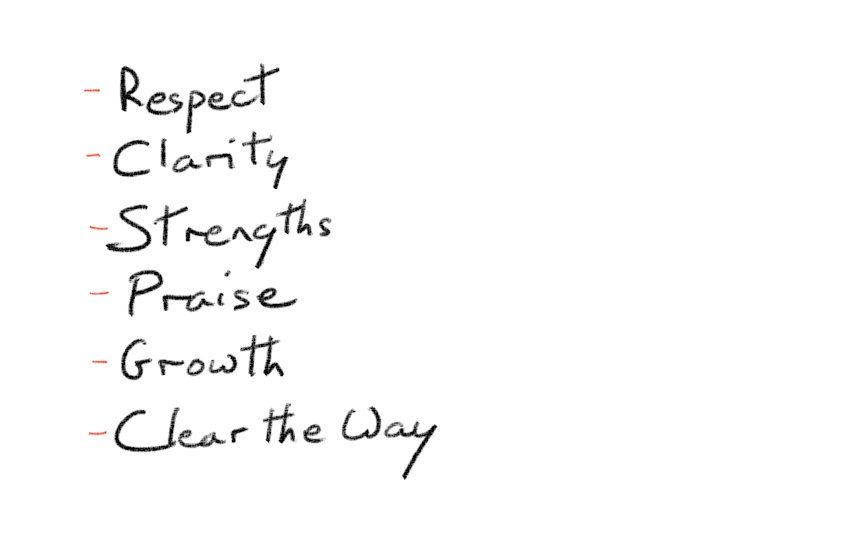 - Respect
- Clarity
- Strengths
- Praise
- Growth
- Clear the Way